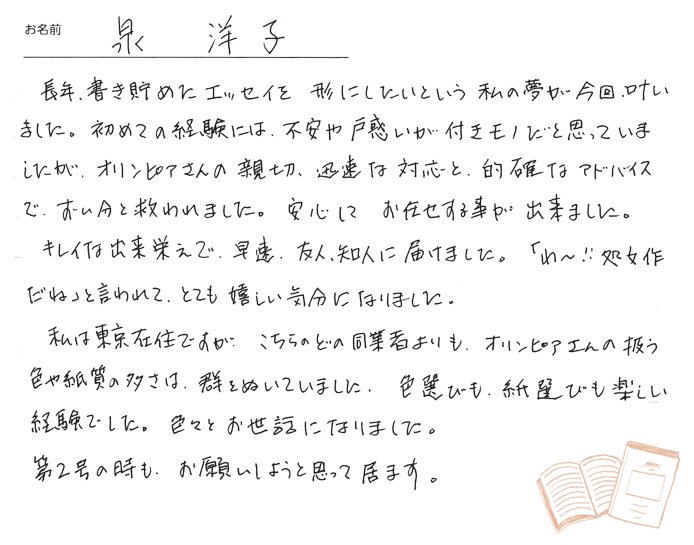 お名前 泉 洋子
長年、書き貯めたエッセイを 形にしたいという 私の夢が 今回、叶い
ました。初めての経験には、不安や戸惑いが 付きモノだと思っていま
したが、オリンピアさんの 親切、迅速な 対応と、的確な アドバイス
で、ずい分と救われました。安心して お任せする事が 出来ました。
キレイな出来栄えで、早速、友人、知人に 届けました。「わ〜!! 処女作
だね」と言われて、とても 嬉しい気分になりました。
私は東京在住ですが、こちらのどの同業者よりも、オリンピアさんの 扱う
色や紙質の多さは、群をぬいていました。色選びも、紙選びも 楽しい
経験でした。色々とお世話になりました。
第2号の時も、お願いしようと思って居ます。